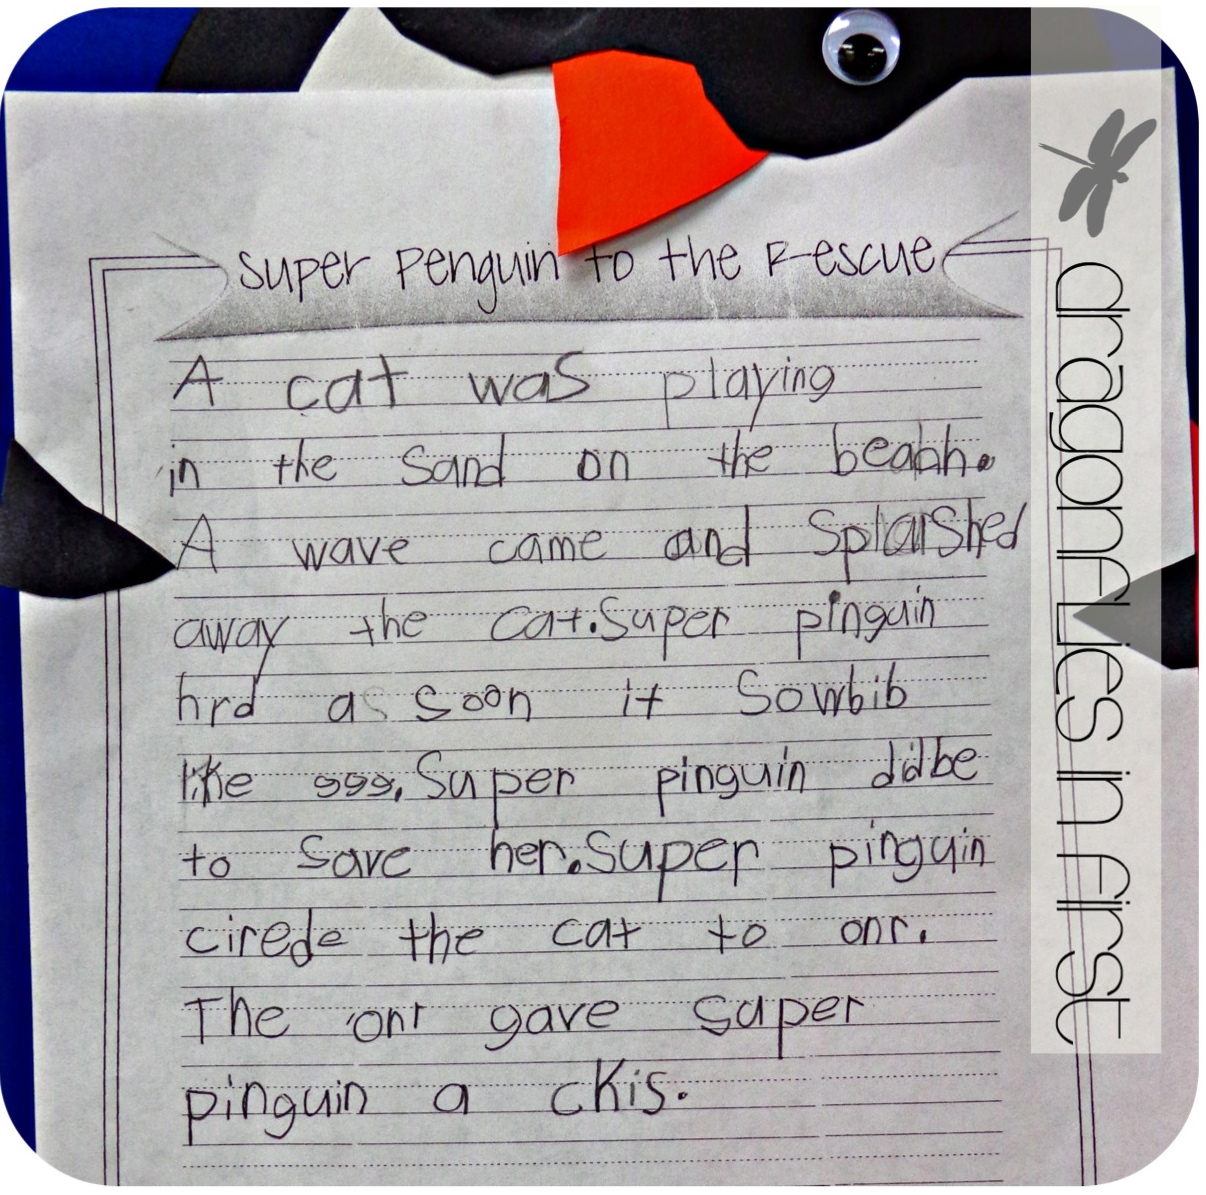 Super Penguin to the Rescue
A cat was playing
in the Sand on the beabh.
A wave came and Splarshed
away the cat.Super pinguin
hrd as soon it Sowbib
like ggg. Super pinguin didbe
to Save her.Super pinguin
cirede the cat to onr.
The onr gave super
pinguin a ckis.
dragonflies in first